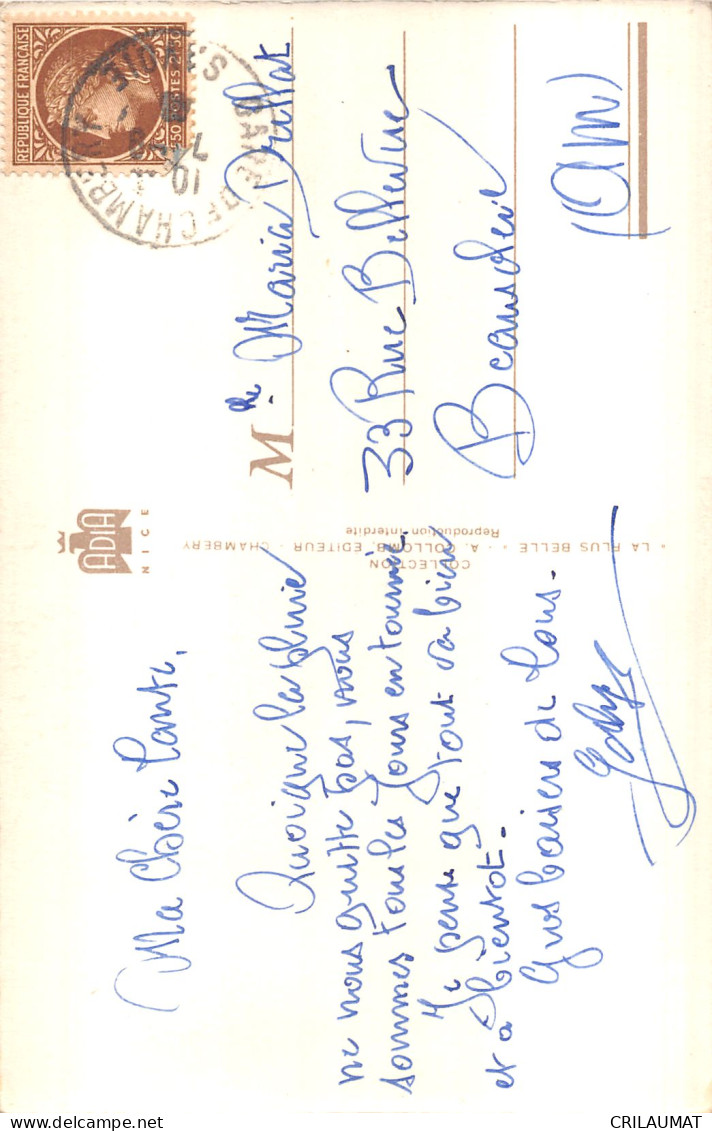 Ma Chère Tante,
Quoique la pluie
ne nous quitte pas, nous
sommes tous les jours en tournée.
Je pense que tout va bien
et à bientôt.
Gros baisers de tous.
ADIA
NICE
COLLECTION
* LA PLUS BELLE * - A. COLLOMB, EDITEUR - CHAMBERY
Reproduction interdite
Mlle Maria
33 Rue Bellevue
Beausoleil
(AM)
REPUBLIQUE FRANÇAISE
POSTES 2F50
GARE DE CHAMBERY
SAVOIE
CRILAUMAT